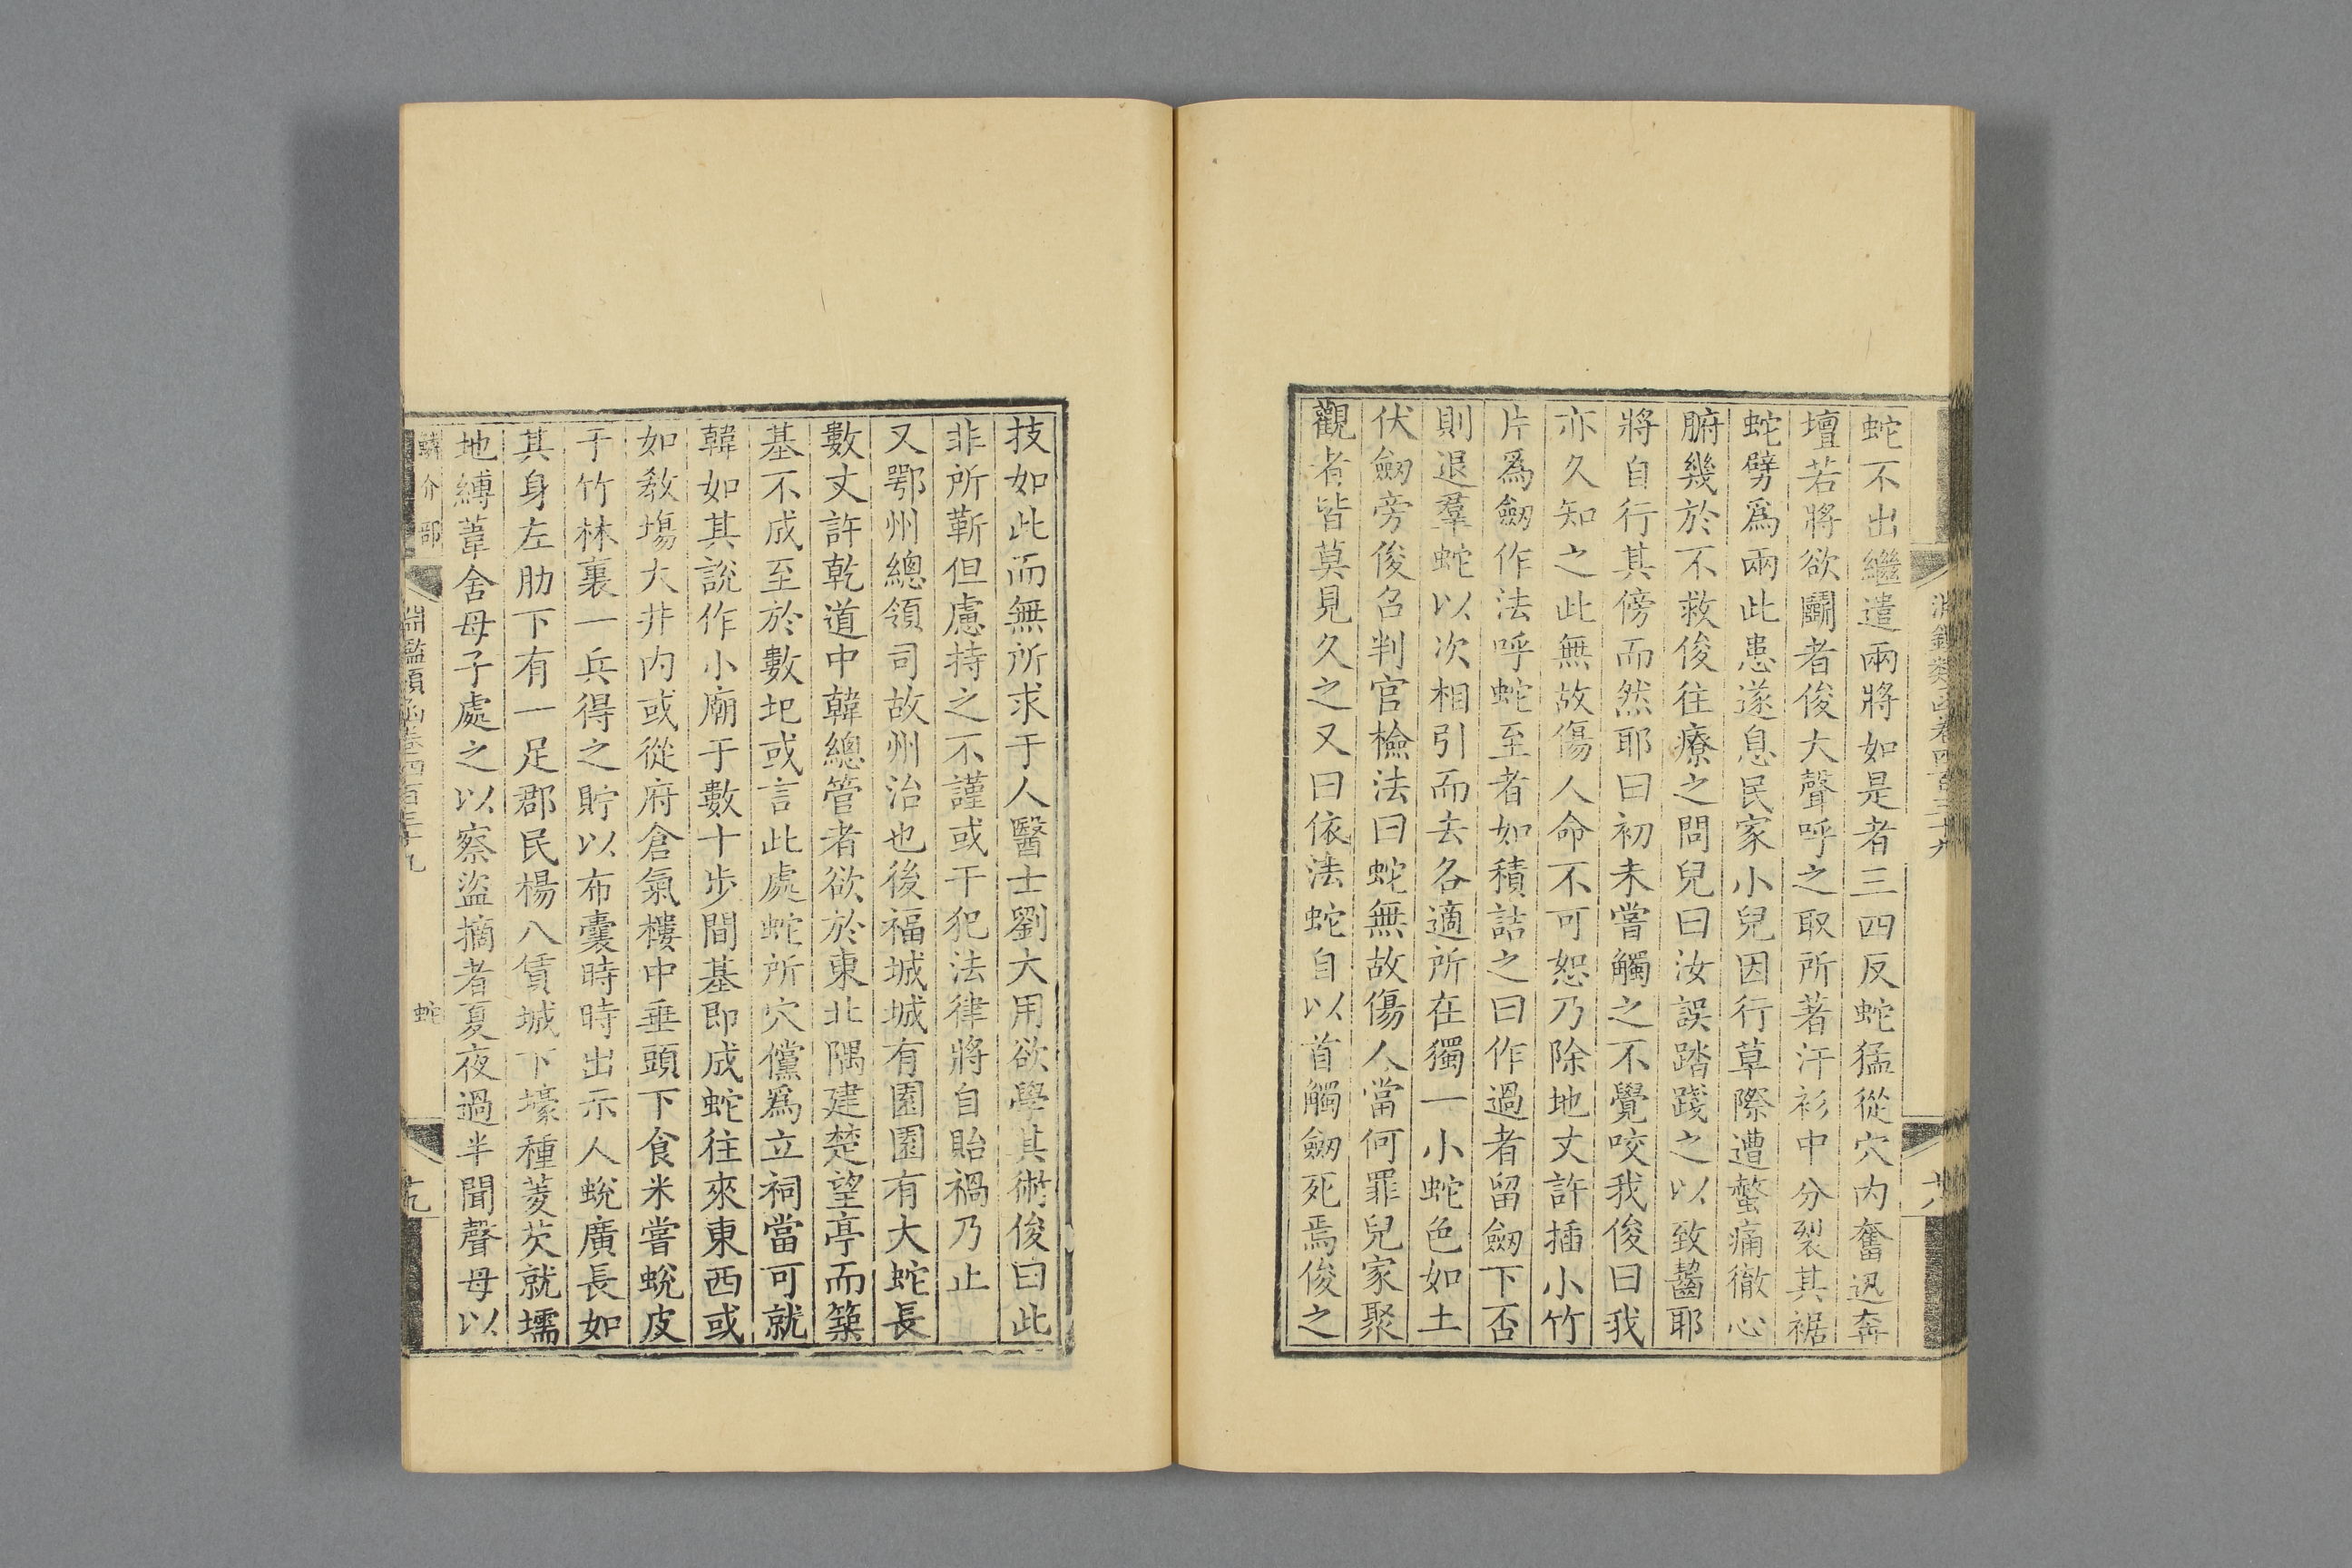 淵鑑類函卷四百三十九
蛇不出繼遣兩將如是者三四反蛇猛從穴內奮迅奔
壇若將欲鬭者俊大聲呼之取所著汗衫中分裂其裾
蛇劈爲兩此患遂息民家小兒因行草際遭螫痛徹心
腑幾於不救俊往療之問兒曰汝誤踏踐之以致齧耶
將自行其傍而然耶曰初未嘗觸之不覺咬我俊曰我
亦久知之此無故傷人命不可恕乃除地丈許插小竹
片爲劒作法呼蛇至者如積詰之曰作過者留劒下否
則退羣蛇以次相引而去各適所在獨一小蛇色如土
伏劒旁俊召判官檢法曰蛇無故傷人當何罪兒家聚
觀者皆莫見久之又曰依法蛇自以首觸劒死焉俊之
技如此而無所求于人醫士劉大用欲學其術俊曰此
非所靳但慮持之不謹或干犯法律將自貽禍乃止
又鄂州總領司故州治也後福城城有園園有大蛇長
數丈許乾道中韓總管者欲於東北隅建楚望亭而築
基不成至於數圯或言此處蛇所穴儻爲立祠當可就
韓如其說作小廟于數十步間基即成蛇往來東西或
如教塲大井內或從府倉氣樓中垂頭下食米嘗蛻皮
于竹林裏一兵得之貯以布囊時時出示人蛻廣長如
其身左肋下有一足郡民楊八賃城下壕種菱芡就壖
地縛葦舍母子處之以察盜摘者夏夜過半聞聲母以
鱗介部
淵鑑類函卷四百三十九
蛇
十九